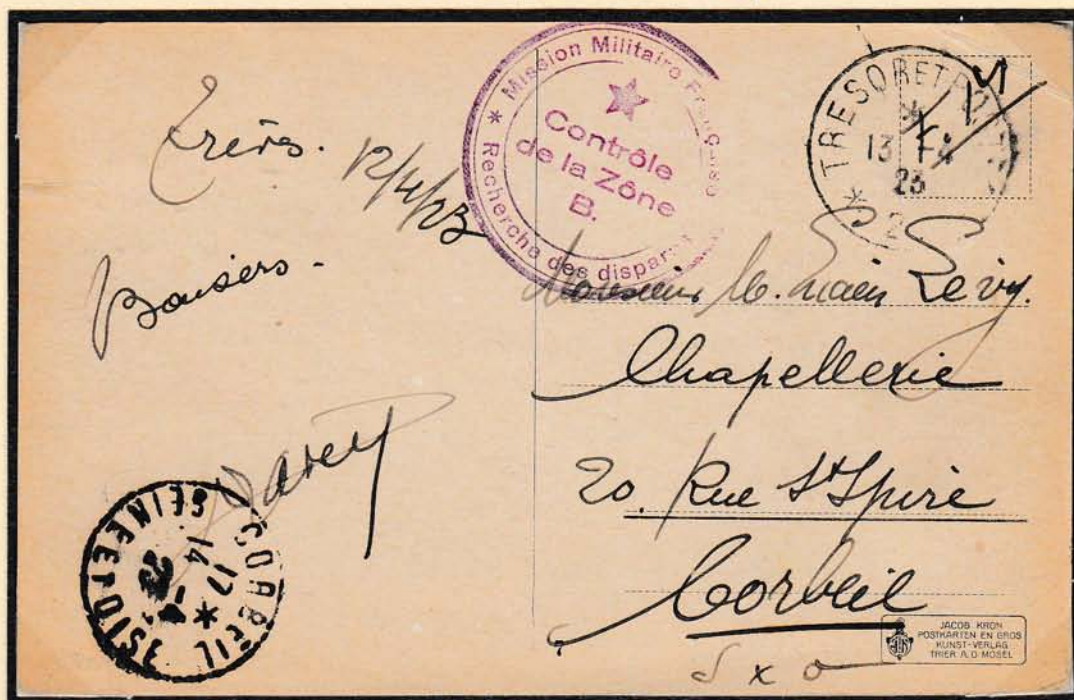 Mission Militaire Française
* Recherche des disparus
Contrôle
de la Zône
B.
TRESOR ET POSTES
13
23
* 2
Trèves. 12/4/23
Baisers.
Monsieur Lévy.
Chapellerie
20. Rue St Spire
Corbeil
S x O
CORBEIL
SEINE ET OISE
17 *
14 -4
23
JACOB KRON
POSTKARTEN EN GROS
KUNST-VERLAG
TRIER A. D. MOSEL